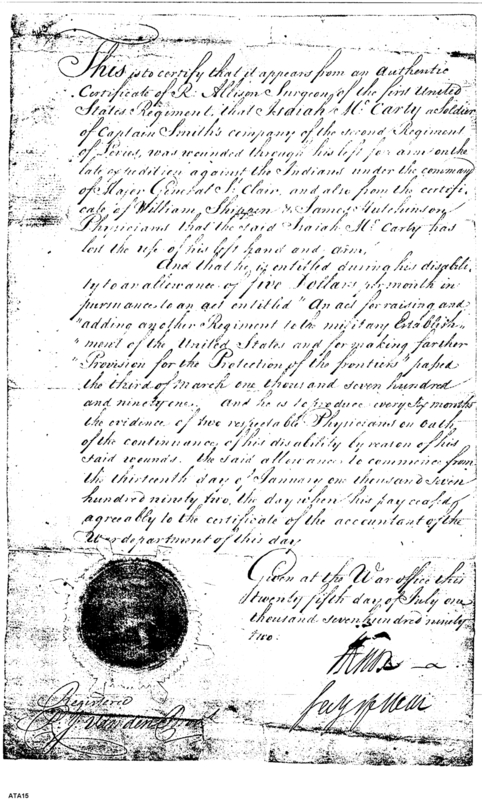 This is to certify that it appears from an authentic
Certificate of R. Allison Surgeon of the first United
States Regiment, that Isaiah Mc Carty a Soldier
of Captain Smith's company of the second Regiment
of Levies, was wounded through his left fore arm on the
late expedition against the Indians under the command
of Major General St Clair, and also from the certifi
cate of William Shippen & James Hutchinson
Physicians that the said Isaiah Mc Carty has
lost the use of his left hand and arm.
And that he is entitled during his disabili
ty to an allowance of five Dollars pr month in
pursuance to an act entitled "An act for raising and
"adding another Regiment to the military Establish
"ment of the United States and for making farther
"Provision for the Protection of the frontiers" passed
the third of March one thousand seven hundred
and ninety one. and he is to produce every six months
the evidence of two respectable Physicians on oath,
of the continuance of his disability by reason of his
said wounds. the said allowance to commence from
the thirteenth day of January one thousand seven
hundred ninety two, the day when his pay ceased
agreeably to the certificate of the accountant of the
War department of this day
Given at the War office this
twenty fifth day of July one
thousand seven hundred ninety
two.
HKnox
Secy of War
Registered
ATA15